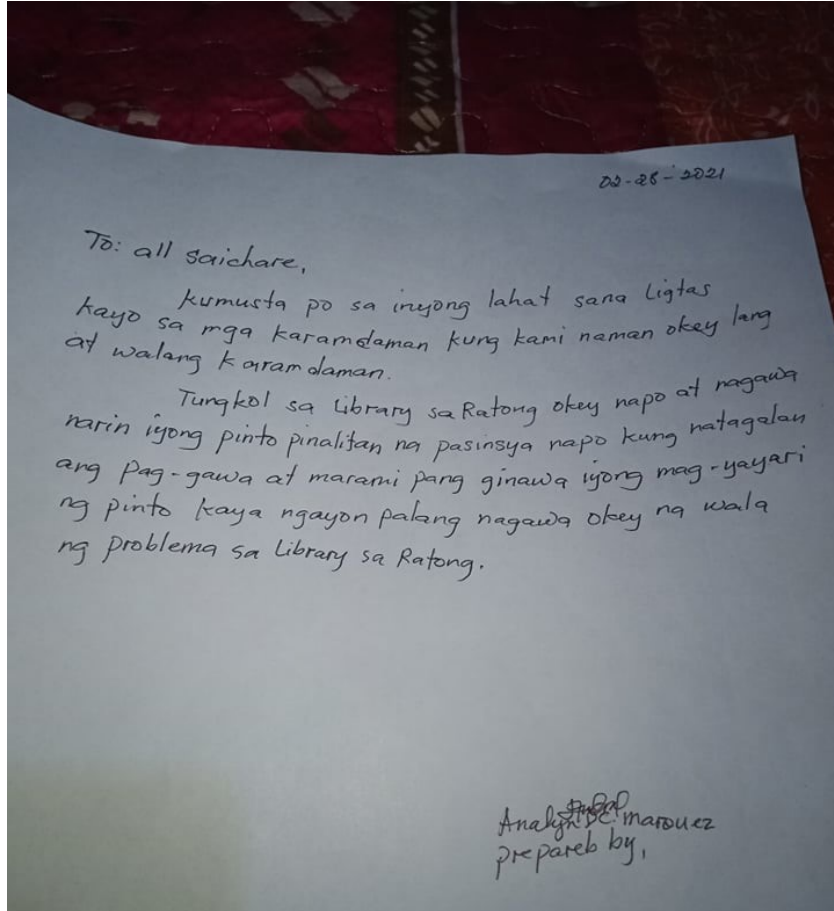 02-28-2021
To: all saichare,
kumusta po sa inyong lahat sana ligtas
kayo sa mga karamdaman kung kami naman okey lang
at walang karamdaman.
Tungkol sa Library sa Ratong okey napo at nagawa
narin iyong pinto pinalitan na pasinsya napo kung natagalan
ang pag-gawa at marami pang ginawa iyong mag-yayari
ng pinto kaya ngayon palang nagawa okey na wala
ng problema sa Library sa Ratong.
Analyn DC. marquez
prepareb by,